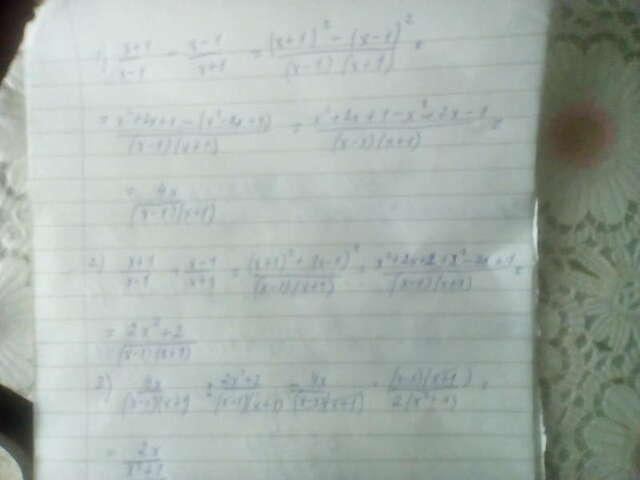 1) (x+1)/(x-1) - (x-1)/(x+1) = ((x+1)² - (x-1)²)/((x-1)(x+1)) =
= (x²+2x+1-(x²-2x+1))/((x-1)(x+1)) = (x²+2x+1-x²+2x-1)/((x-1)(x+1)) =
= 4x/((x-1)(x+1))
2) (x+1)/(x-1) + (x-1)/(x+1) = ((x+1)²+(x-1)²)/((x-1)(x+1)) = (x²+2x+1+x²-2x+1)/((x-1)(x+1)) =
= (2x²+2)/((x-1)(x+1))
3) 4x/((x-1)(x+1)) : (2x²+2)/((x-1)(x+1)) = 4x/((x-1)(x+1)) · ((x-1)(x+1))/(2(x²+1)) =
= 2x/(x²+1)